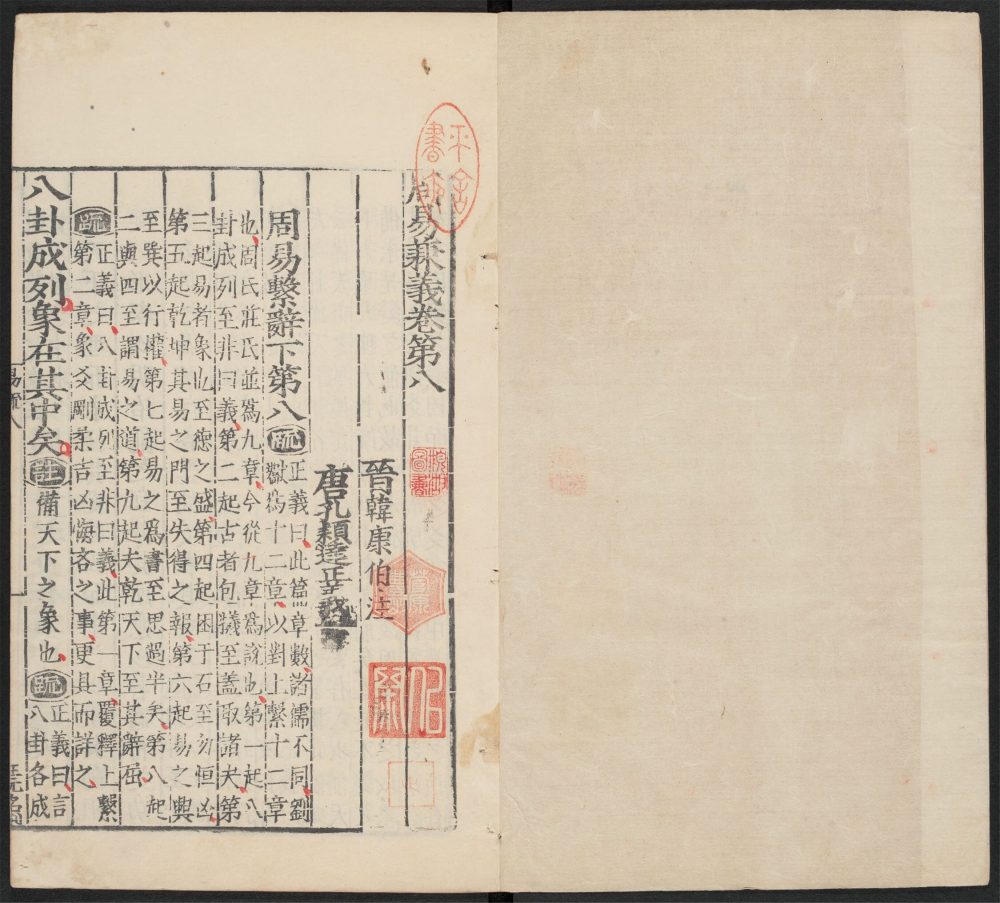 周易兼義卷第八
晉韓康伯注
唐孔穎達正義
周易繫辭下第八疏正義曰此篇章數諸儒不同劉
瓛爲十二章以對上繫十二章
也周氏莊氏並爲九章今從九章爲說也第一起八
卦成列至非曰義第二起古者包犧至蓋取諸夬第
三起易者象也至德之盛第四起困于石至勿恒凶
第五起乾坤其易之門至失得之報第六起易之興
至巽以行權第七起易之爲書至思過半矣第八起
二與四至謂易之道第九起夫乾天下至其辭屈
疏正義曰八卦成列至非曰義此第一章覆釋上繫
第二章象爻剛柔吉凶悔吝之事更具而詳之
八卦成列象在其中矣註備天下之象也疏正義曰言
八卦各成
易疏八